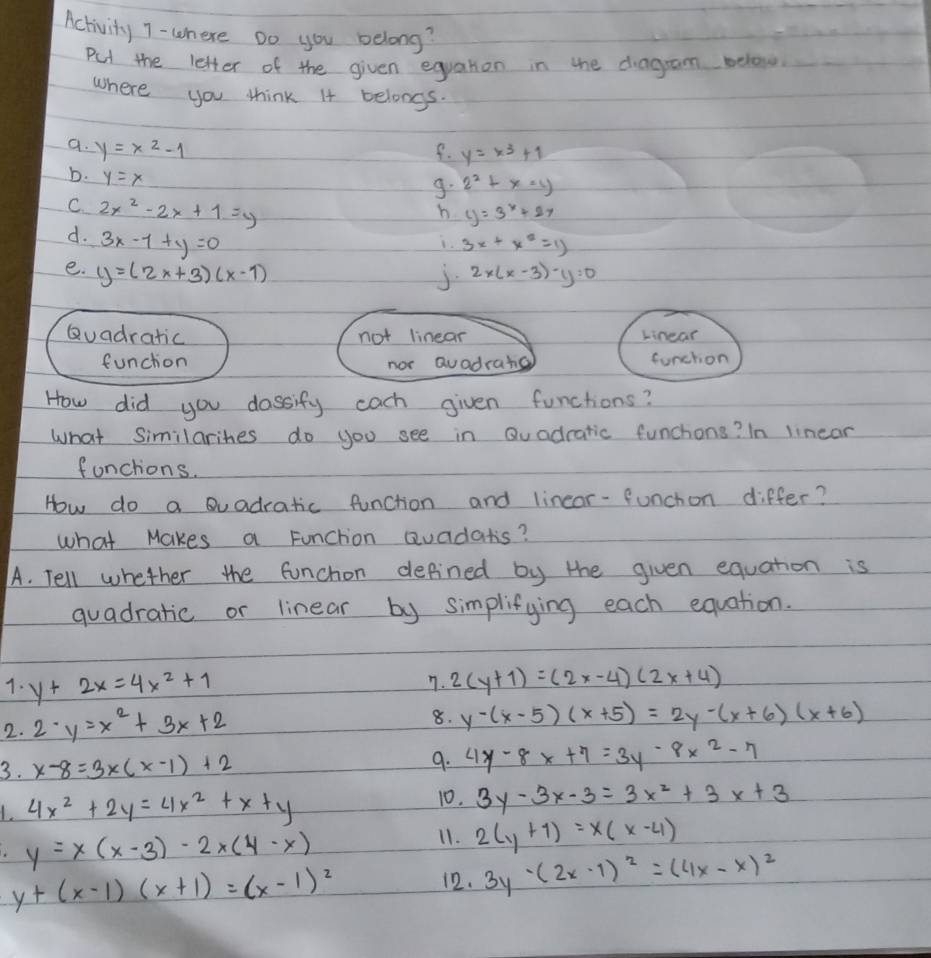 Activity 1-where Do you belong?
Put the letter of the given equation in the diagram below.
where you think it belongs.
a. y = x² - 1
b. y = x
c. 2x² - 2x + 1 = y
d. 3x - 1 + y = 0
e. y = (2x+3)(x-1)
f. y = x³ + 1
g. 2² + x = y
h. y = 3ˣ + 2x
i. 3x + x² = y
j. 2x(x-3) - y = 0
Quadratic
function
not linear
nor Quadratic
Linear
function
How did you classify each given functions?
What similarities do you see in Quadratic functions? In linear
functions.
How do a Quadratic function and linear-function differ?
What Makes a Function Quadatis?
A. Tell whether the function defined by the given equation is
quadratic or linear by simplifying each equation.
1. y + 2x = 4x² + 1
2. 2 - y = x² + 3x + 2
3. x - 8 = 3x(x-1) + 2
4x² + 2y = 4x² + x + y
y = x(x-3) - 2x(4-x)
y + (x-1)(x+1) = (x-1)²
7. 2(y+1) = (2x-4)(2x+4)
8. y - (x-5)(x+5) = 2y - (x+6)(x+6)
9. 4y - 8x + 7 = 3y - 8x² - 7
10. 3y - 3x - 3 = 3x² + 3x + 3
11. 2(y+1) = x(x-4)
12. 3y - (2x-1)² = (4x-x)²